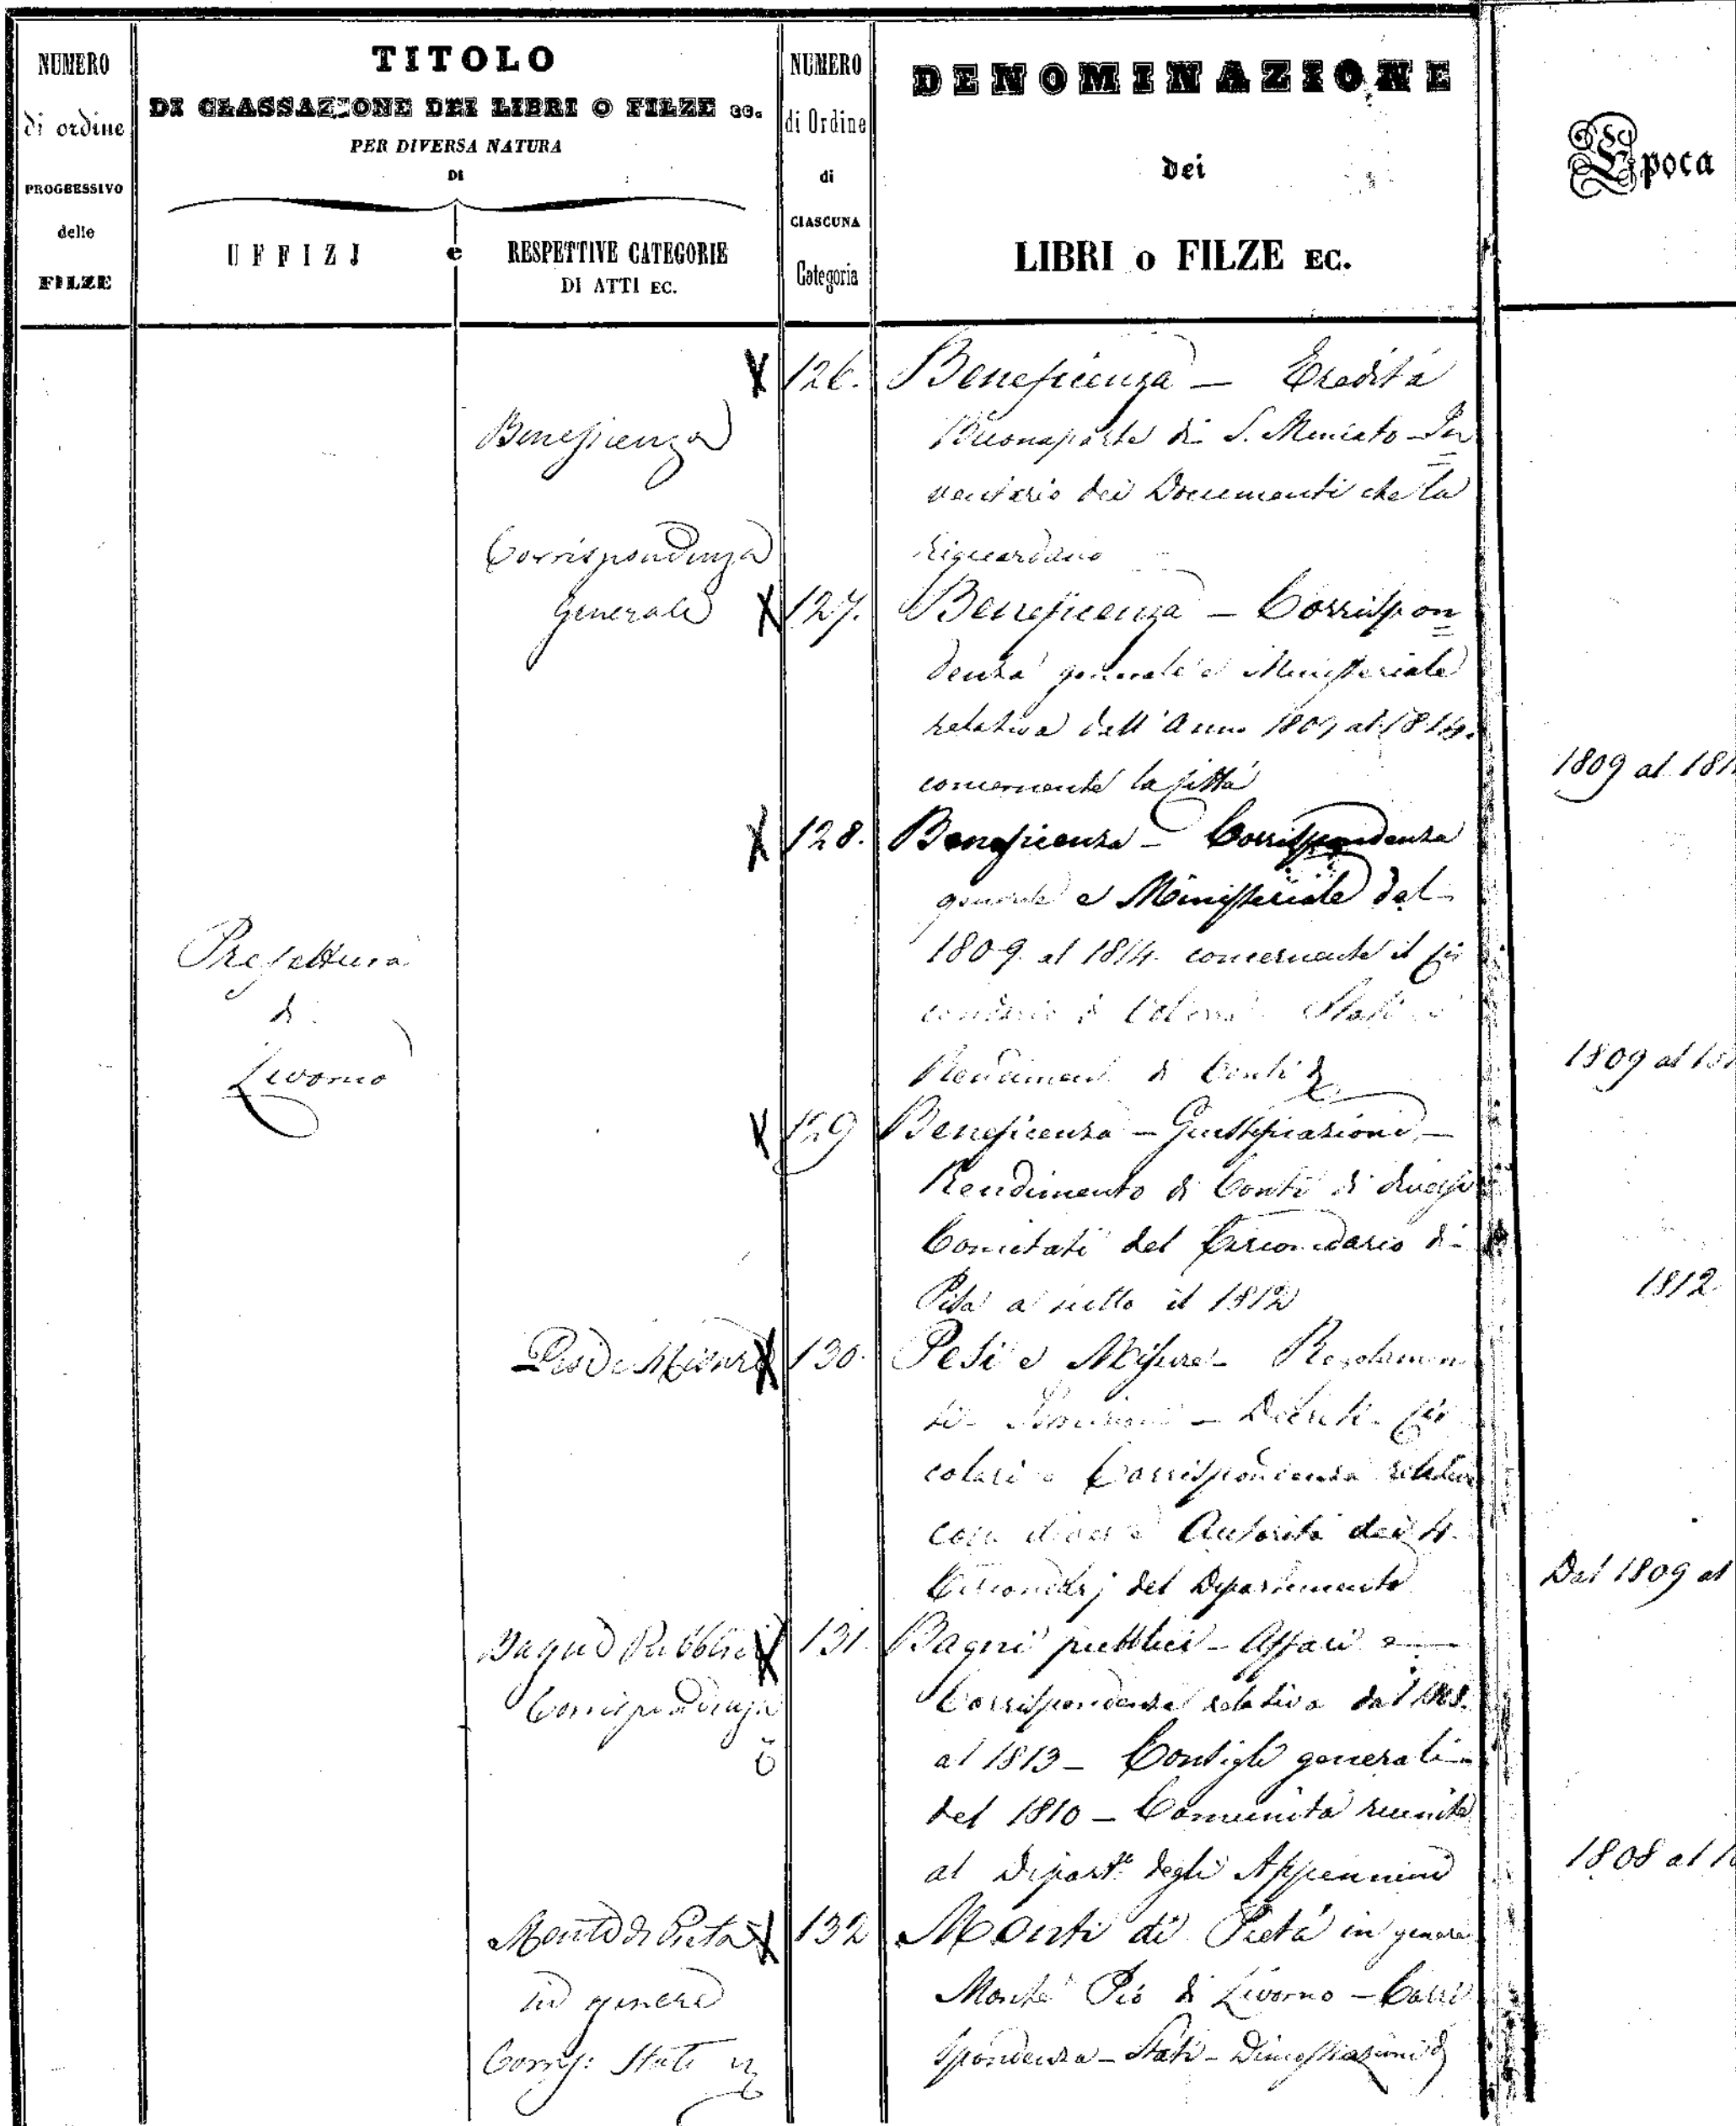 NUMERO
di ordine
PROGRESSIVO
delle
FILZE
TITOLO
DI CLASSAZIONE DEI LIBRI O FILZE ec.
PER DIVERSA NATURA
DI
UFFIZJ e RESPETTIVE CATEGORIE
DI ATTI EC.
NUMERO
di Ordine
di
CIASCUNA
Categoria
DENOMINAZIONE
dei
LIBRI o FILZE EC.
Epoca
Prefettura
di
Livorno
Beneficenza
Corrispondenza
Generale
X 126. Beneficenza — Eredità
Buonaparte di S. Miniato - In
ventario dei Documenti che la
riguardano
X 127. Beneficenza — Corrispon
denza generale e Ministeriale
relativa dall'Anno 1809 al 1814.
concernente la Città
1809 al 181
X 128. Beneficenza — Corrispondenza
generale e Ministeriale dal
1809. al 1814. concernente il Cir
condario di Stati
Rendimenti di Conti
1809 al 181
X 129 Beneficenza — Giustificazioni —
Rendimento di Conti di diversi
Comitati del Circondario di
Pisa a tutto il 1812
1812
Pesi e Misure X 130. Pesi e Misure - Regolamen
ti - Istruzioni — Decreti - Cir
colari e Corrispondenza relativa
con diverse Autorità dei 4.
Circondarj del Dipartimento
Dal 1809 al
Bagni Pubblici X 131. Bagni pubblici - Affari e
Corrispondenza
Corrispondenza relativa dal 1808.
al 1813 — Consigli generali
del 1810 — Comunità riunite
al Dipart.º degli Appennini
1808 al 1
Monti di Pietà X 132 Monti di Pietà in genere
in genere
Monte Pio di Livorno — Corri
Corrisp: Stati
spondenza — Stati — Dimostrazioni